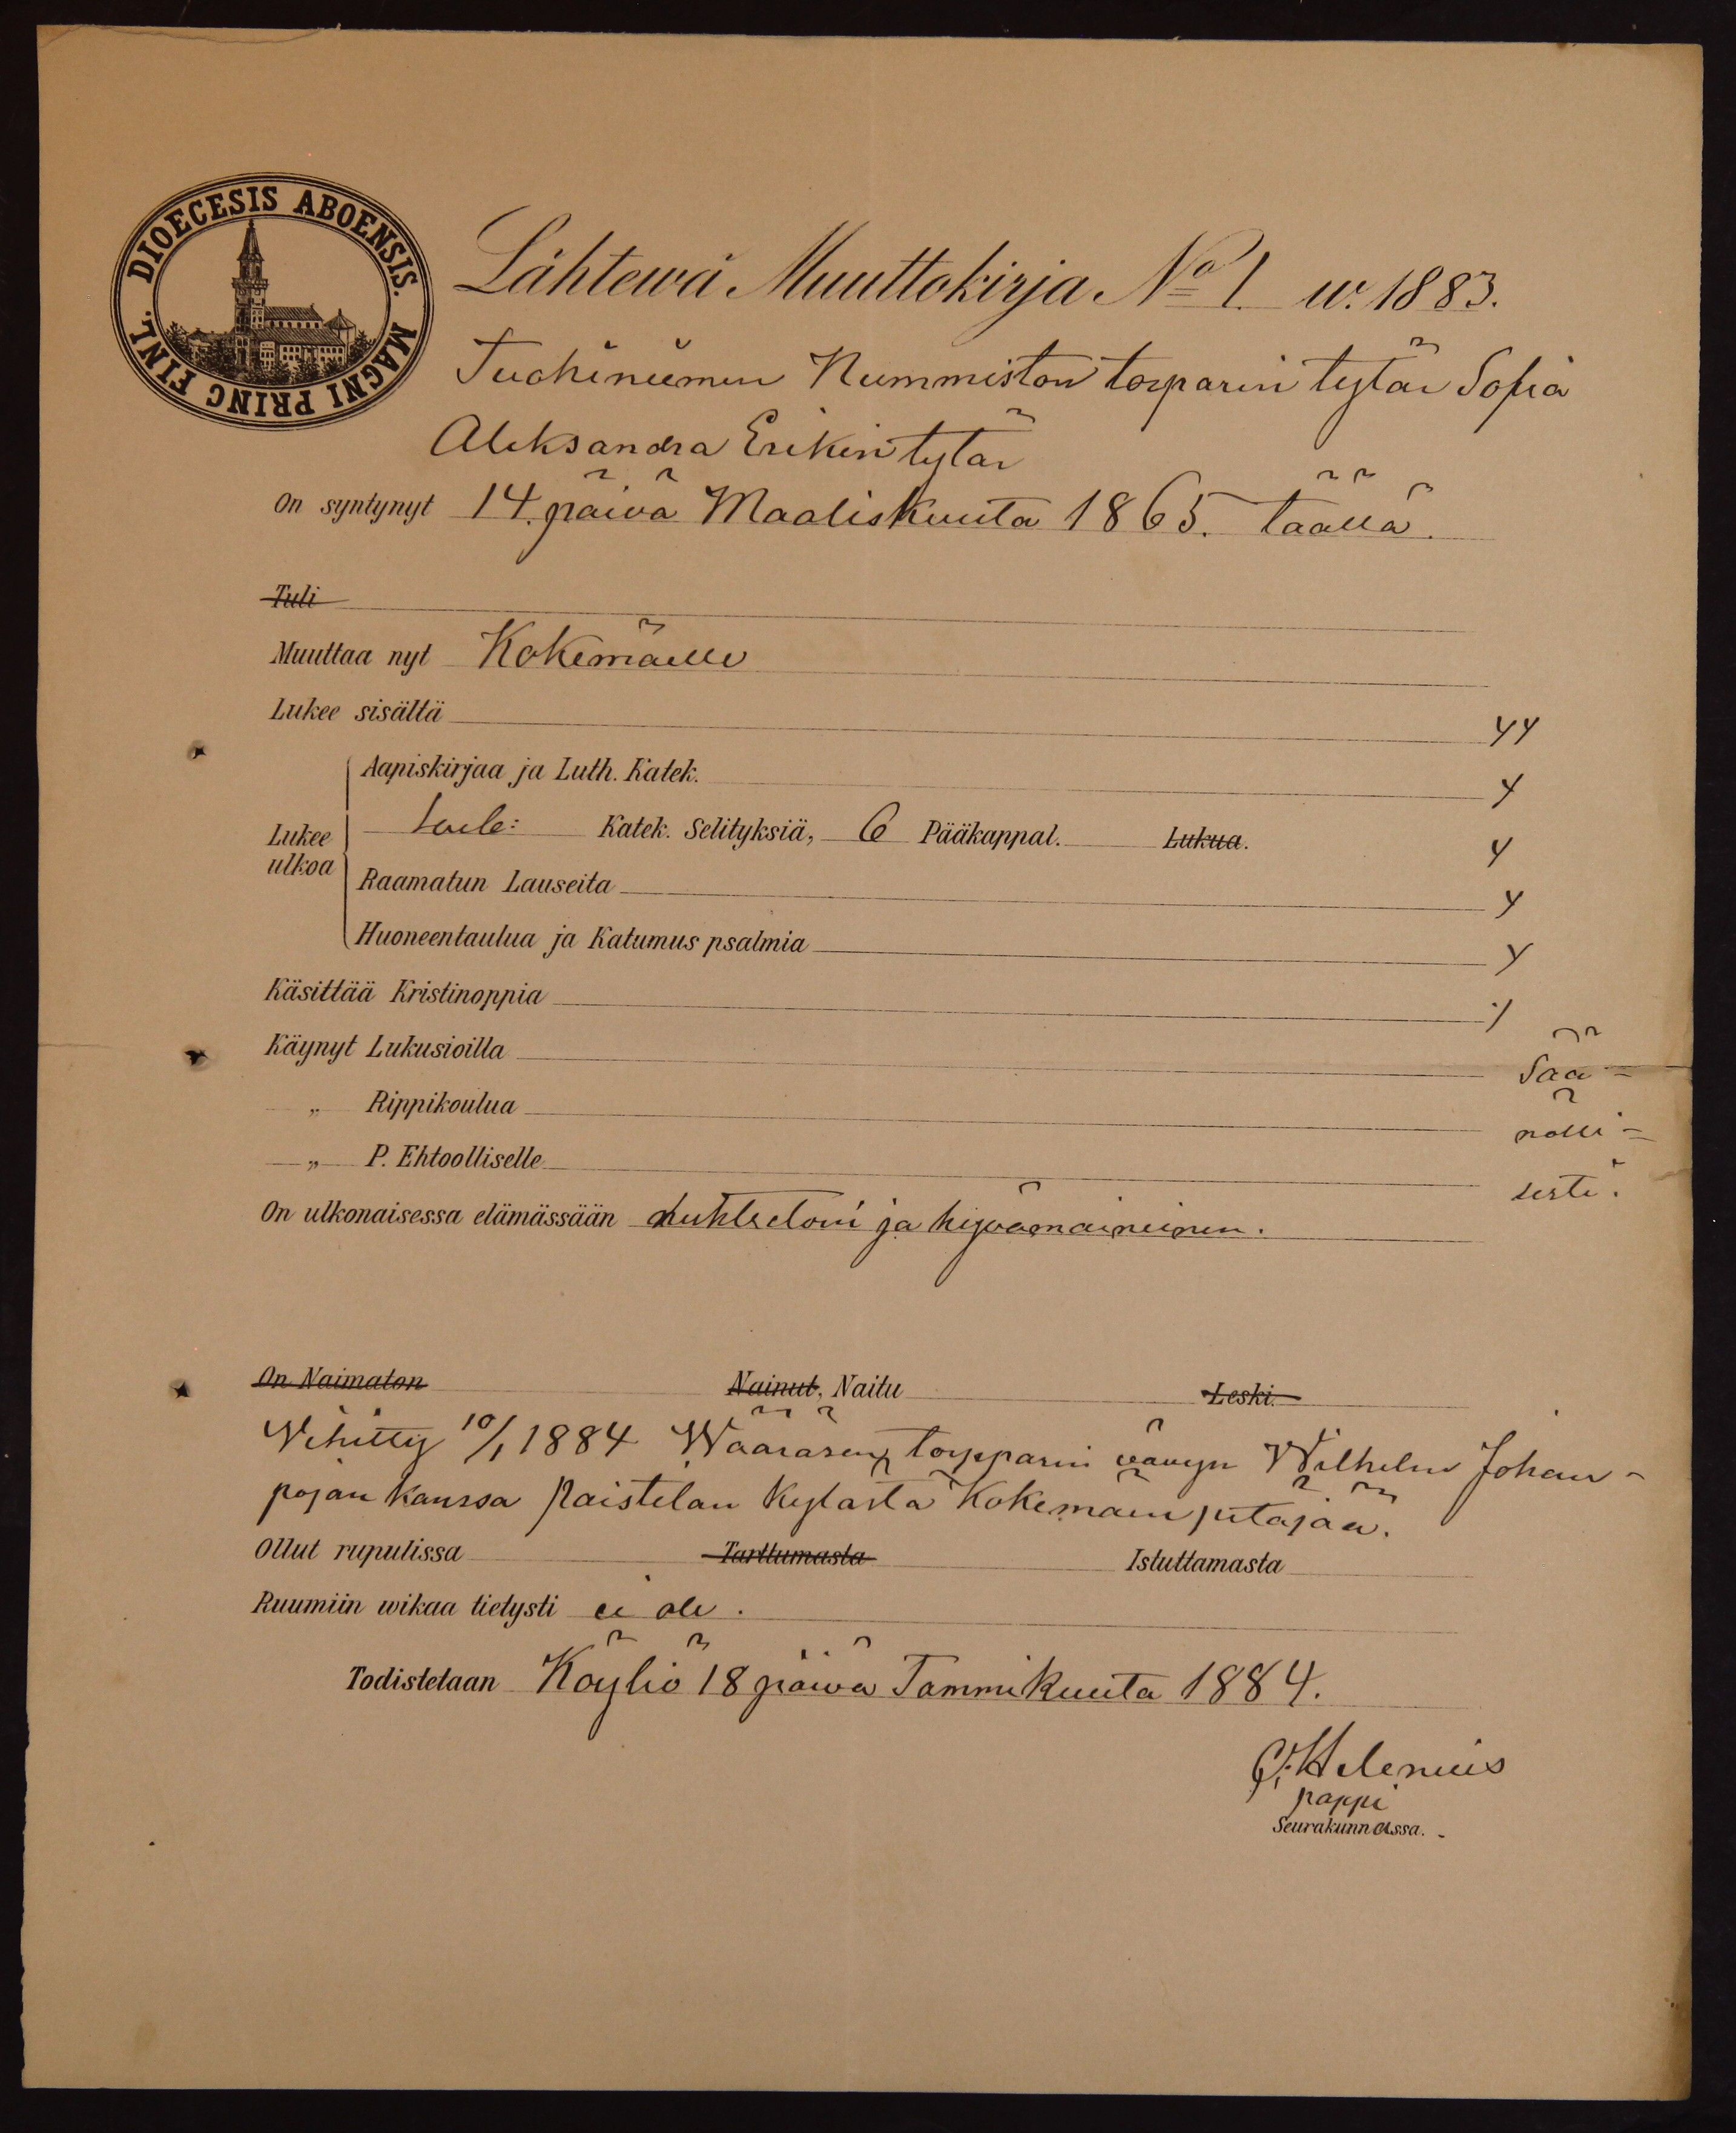 DIOECESIS ABOENSIS. MAGNI PRINC FINL.
Lähtewä Muuttokirja No 1. w. 1883.
Tuohiniemen Nummiston torparin tytär Sofia
Aleksandra Erikin tytär
On syntynyt 14. päivä Maaliskuuta 1865. täällä.
Tuli
Muuttaa nyt Kokemäelle
Lukee sisältä
Aapiskirjaa ja Luth. Katek.
Lukee ulkoa
Katek. Selityksiä, 6 Pääkappal. Lukua.
Raamatun Lauseita
Huoneentaulua ja Katumus psalmia
Käsittää Kristinoppia
Käynyt Lukusioilla Sää=
„ Rippikoulua nölli=
„ P. Ehtoolliselle sesti.
On ulkonaisessa elämässään nuhteetoin ja hyvämaineinen.
On Naimaton Nainut, Naitu Leski.
Vihitty 10/1 1884 torpparin vävyn Wilhelm Johan-
pojan kanssa Paistelan kylästä Kokemäen pitäjää.
Ollut rupulissa Tarttumasta Istuttamasta
Ruumiin wikaa tietysti ei ole.
Todistetaan Köyliö 18 päivä Tammikuuta 1884.
Helenius
pappi
Seurakunnassa.